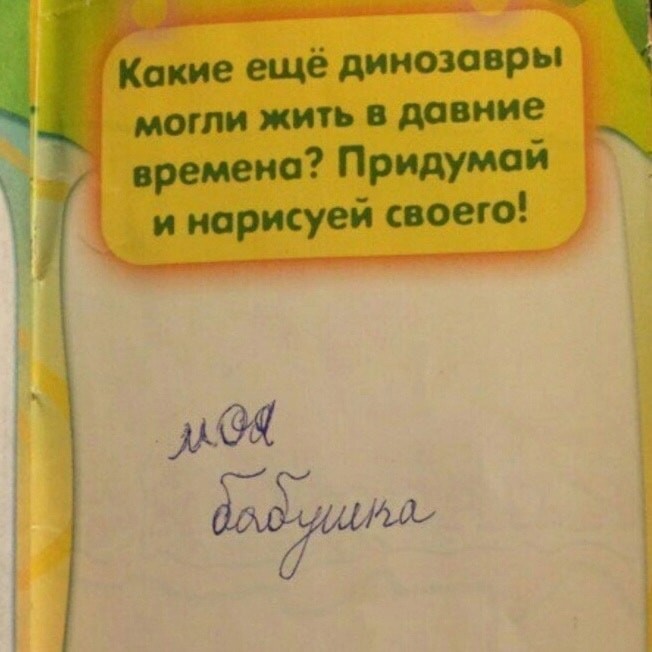 Какие ещё динозавры
могли жить в давние
времена? Придумай
и нарисуей своего!
моя
бабушка